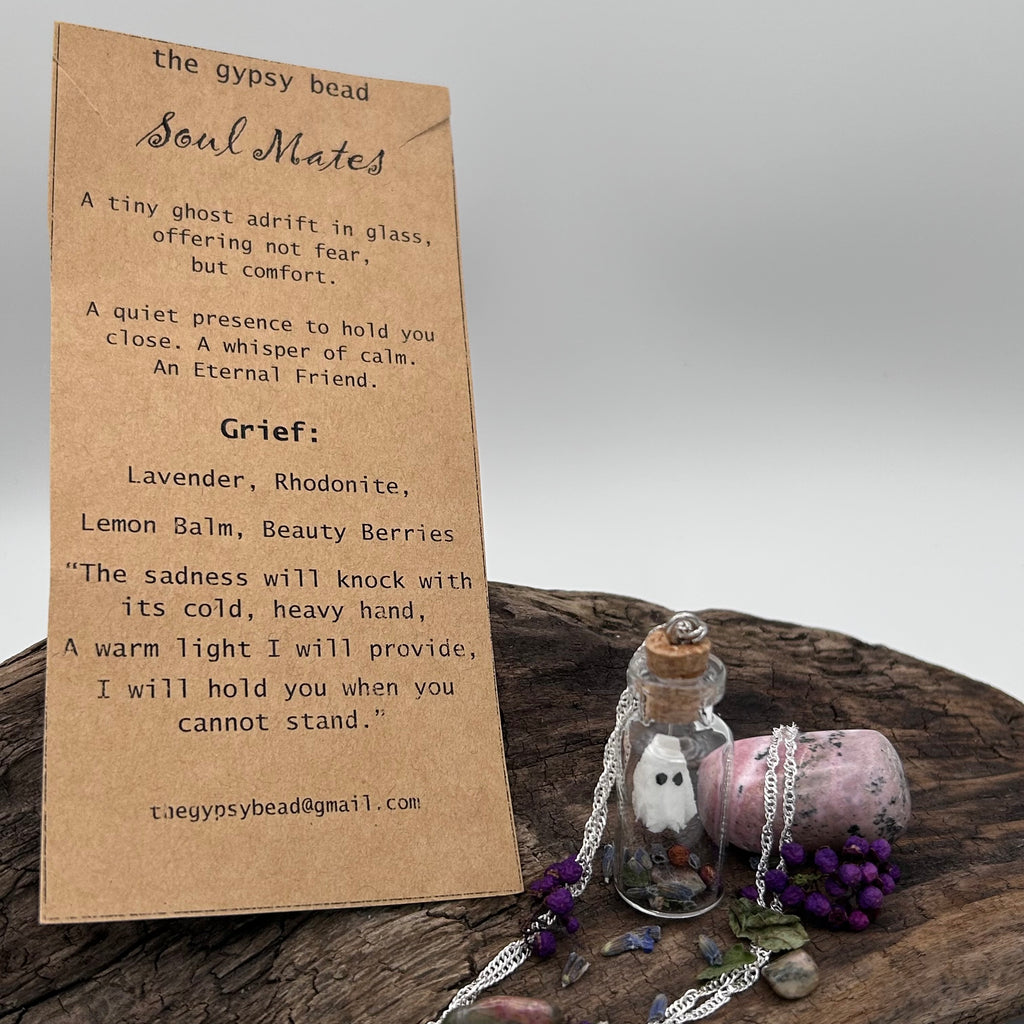 the gypsy bead
Soul Mates
A tiny ghost adrift in glass,
offering not fear,
but comfort.
A quiet presence to hold you
close. A whisper of calm.
An Eternal Friend.
Grief:
Lavender, Rhodonite,
Lemon Balm, Beauty Berries
“The sadness will knock with
its cold, heavy hand,
A warm light I will provide,
I will hold you when you
cannot stand.”
thegypsybead@gmail.com